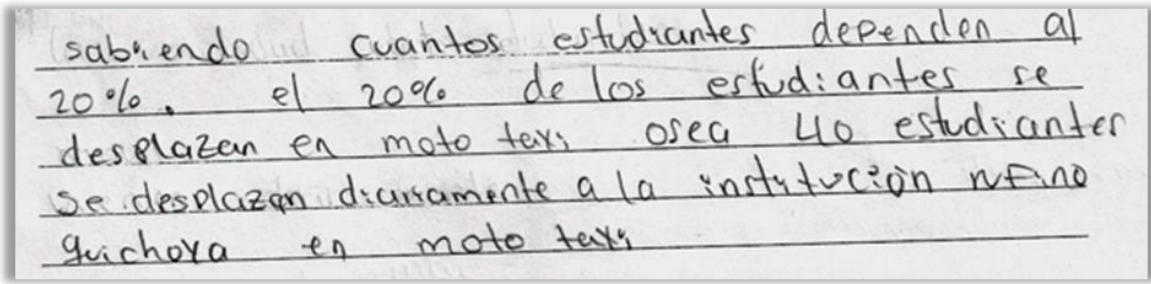 sabiendo cuantos estudiantes dependen al
20%. el 20% de los estudiantes se
desplazan en moto taxi osea 40 estudiantes
se desplazan diariamente a la institución rufino
quichoya en moto taxi